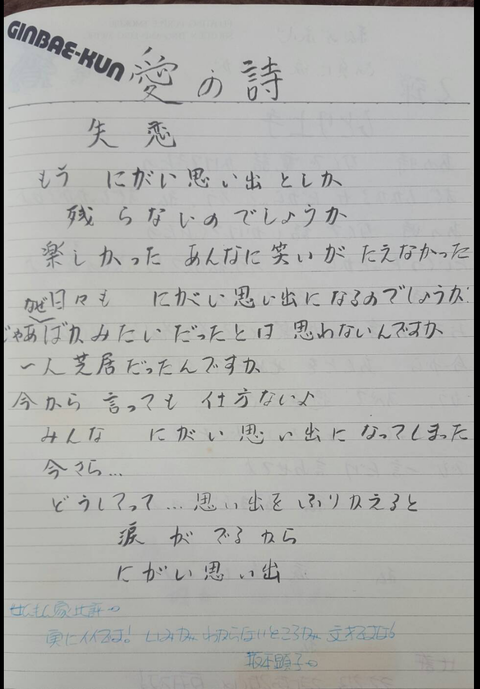 GINBAE-KUN
愛の詩
失恋
もう にがい思い出としか
残らないのでしょうか
楽しかった あんなに笑いが たえなかった
日々も にがい思い出になるのでしょうか
なぜ
じゃあばかみたいだったとは 思わないんですか
一人芝居だったんですか
今から 言っても 仕方ないよ
みんな にがい思い出に なってしまった
今さら…
どうしてって…思い出を ふりかえると
涙 が でるから
にがい思い出
実にイイですな! いみが わからないところが